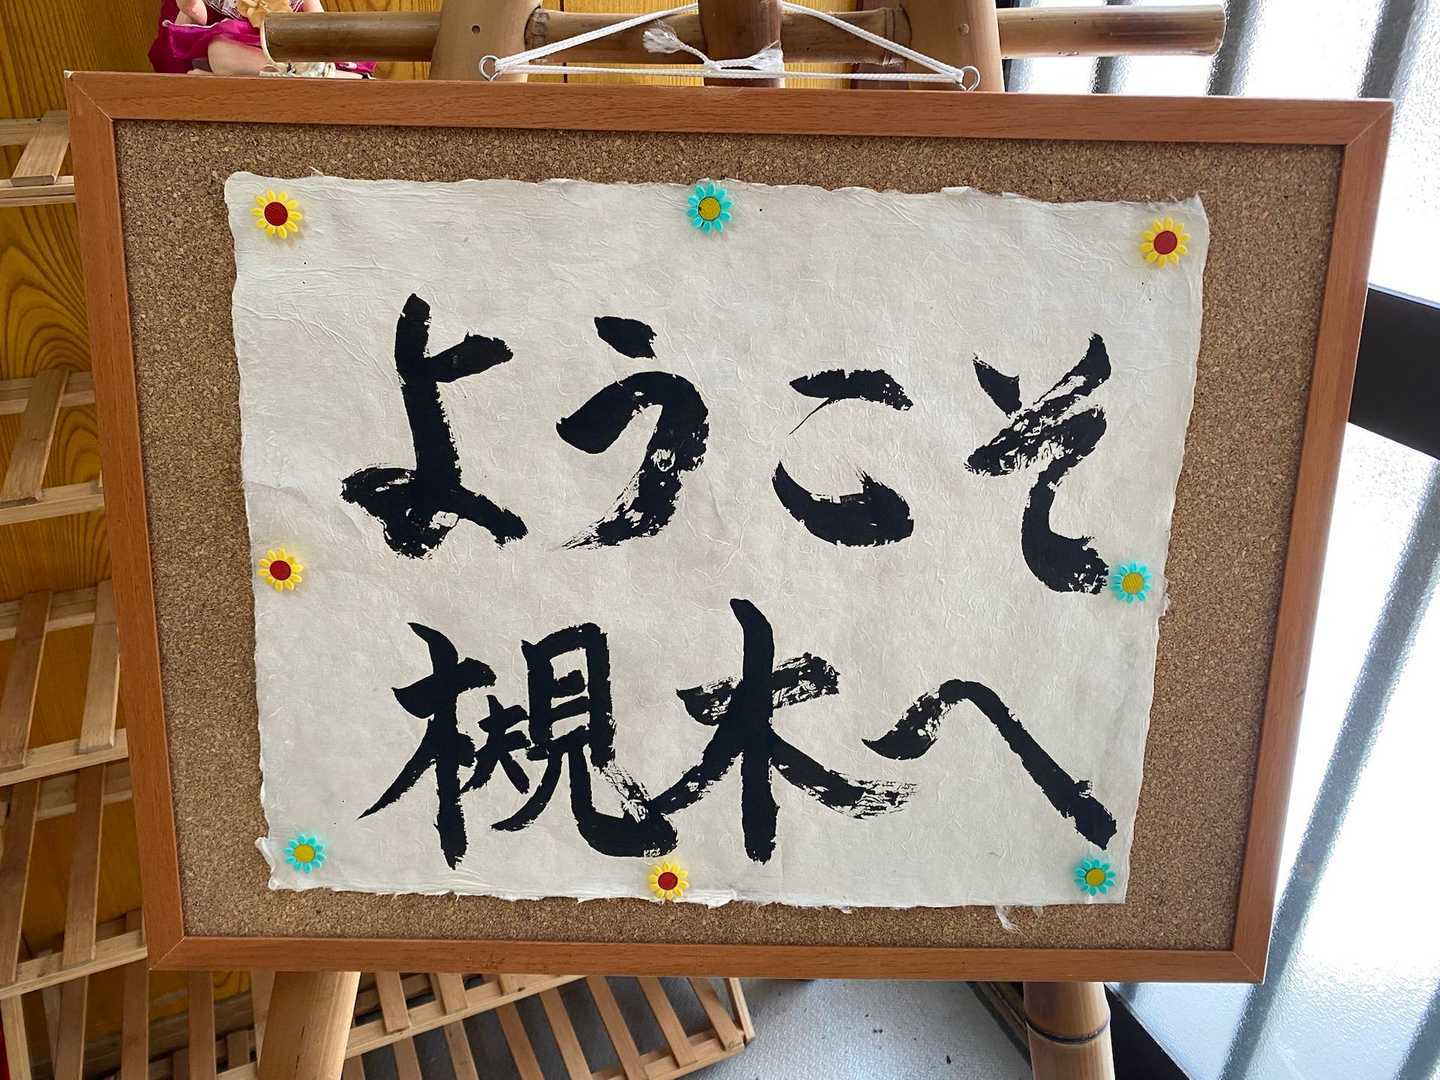 ようこそ
槻木へ